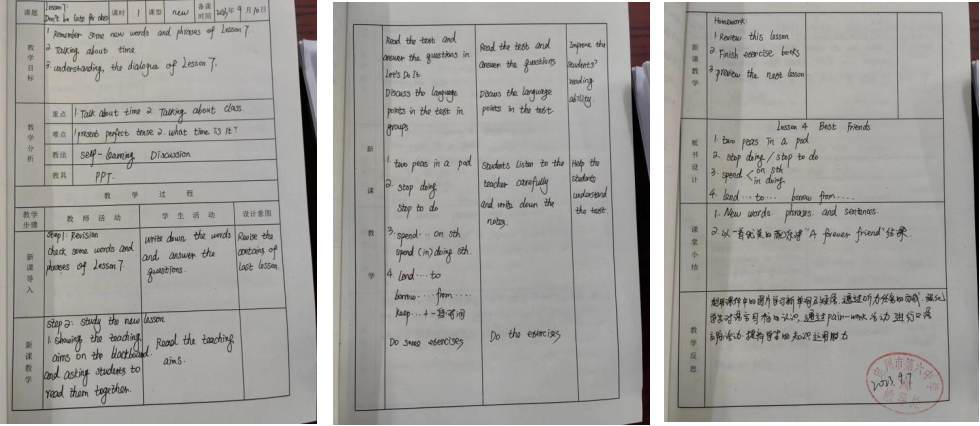 课题
Lesson7:
Don't be late for class
课时
1
课型
new
备课时间
2023年9月10日
教学目标
1. Remember some new words and phrases of Lesson 7
2. Talking about time
3. understanding the dialogue of Lesson 7.
教学分析
重点
1. Talk about time 2. Talking about class
难点
1 present perfect tense 2. what time is it?
教法
self-learning Discussion
教具
PPT.
教 学 过 程
教学步骤
教 师 活 动
学 生 活 动
设计意图
新课导入
Step1: Revision
check some words and
phrases of Lesson 7.
write down the words
and answer the
questions.
Revise the
contains of
last lesson.
新课教学
step 2: study the new lesson
1. showing the teaching
aims on the blackboard.
and asking students to
read them together.
Read the teaching
aims.
新
课
教
学
Read the text and
answer the questions in
Let's Do It
Discuss the language
points in the text in
groups
Read the text and
answer the questions
Discuss the language
points in the text
Improve the
students'
reading
ability.
1. two peas in a pod
2. stop doing
step to do
3. spend... on sth
spend (in) doing sth.
4. Lend... to
borrow... from....
keep... +一段时间
Do some exercises
Students listen to the
teacher carefully
and write down the
notes.
Do the exercises
Help the
students
understand
the text.
新课教学
Homework:
1 Review this lesson
2 Finish exercise books
3 preview the next lesson
板书设计
Lesson 4 Best Friends
1. two peas in a pod
2. stop doing / stop to do
3. spend < on sth
in doing
4. lend ... to ... borrow from....
课堂小结
1. New words phrases and sentences.
2. "A forever friend" 结束.
教学反思
通过 pair-work 活动
2023. 9.7